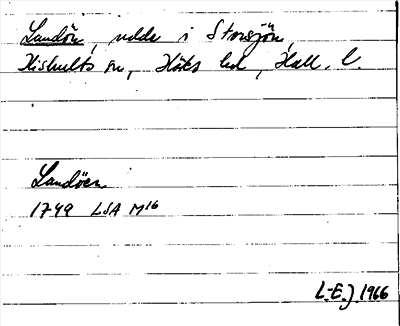 Landön, udde i Storsjön,
Hishults sn, Höks hd, Hall. l.
Landöen
1749 LSA M16
L-E.J. 1966